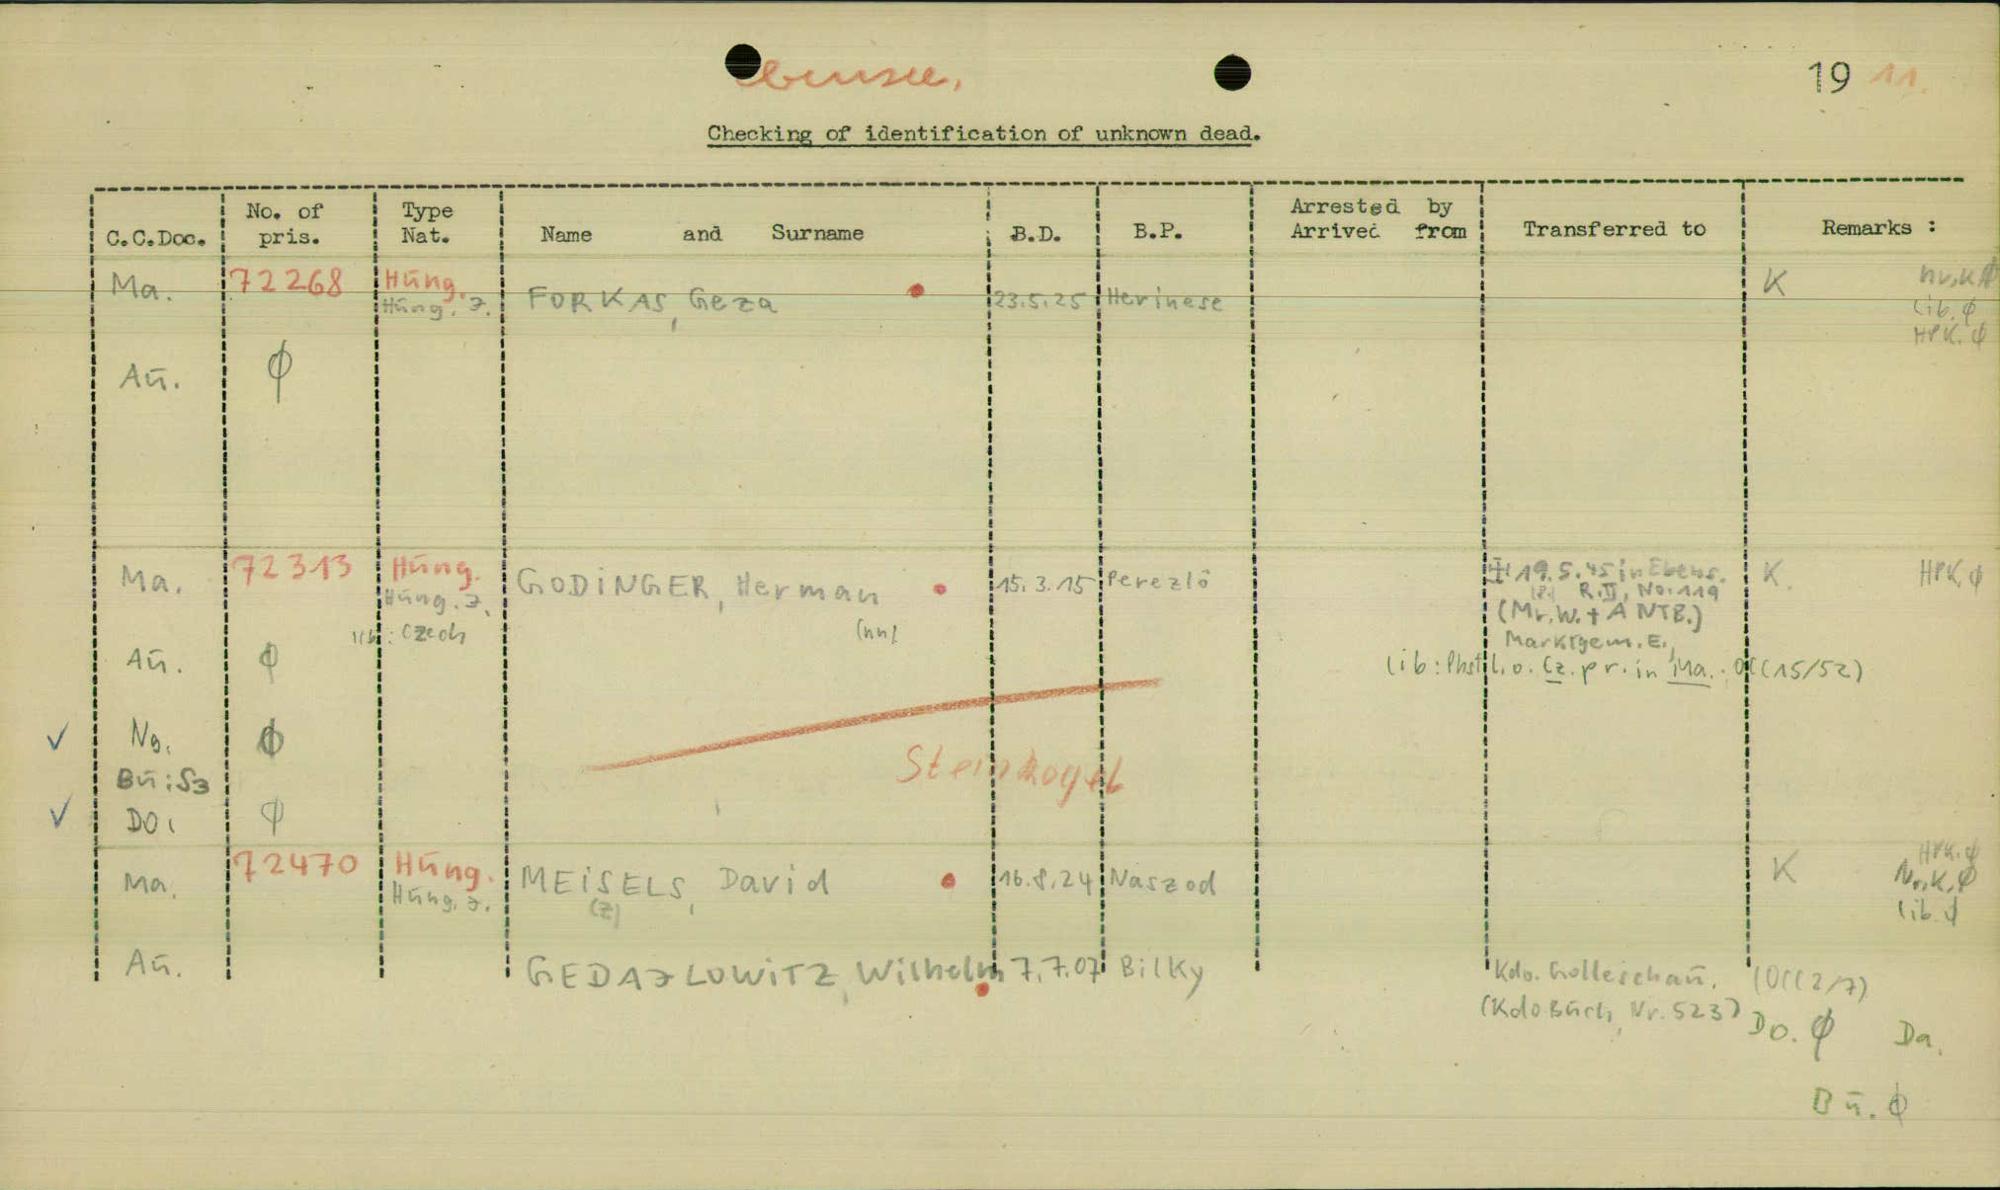 Ebensee.
19 11.
Checking of identification of unknown dead.
C.C.Doc. No. of pris. Type Nat. Name and Surname B.D. B.P. Arrested by Arrived from Transferred to Remarks :
Ma. 72268 Hŭng. FORKAS, Geza 23.5.25 Herinese K Nr.K ϕ
Hŭng. J. lib. ϕ
HPK. ϕ
Aŭ. ϕ
Ma. 72313 Hŭng. GODINGER, Herman 15.3.15 Perezlö ‡ 19.5.45 in Ebens. K. HPK. ϕ
Hŭng. J. R.II, No. 119
lib: Czech (nn) (Mr. W. + A NTB.)
Marktgem. E.,
Aŭ. ϕ lib: Phst. l. o. Cz. pr. in Ma. OCC 15/52)
✓ No. ϕ
Steinkogel
Bŭ: S3
✓ Do. ϕ
Ma. 72470 Hŭng. MEISELS, David 16.8.24 Naszod K HPK. ϕ
Hŭng. J. (Z) Nr.K. ϕ
lib. ϕ
Aŭ. GEDAJLOWITZ, Wilhelm 7.7.07 Bilky Kdo. Golleschaŭ. (OCC 2/7)
(Kdo Bŭch, Nr. 523) Do. ϕ Da.
Bŭ. ϕ